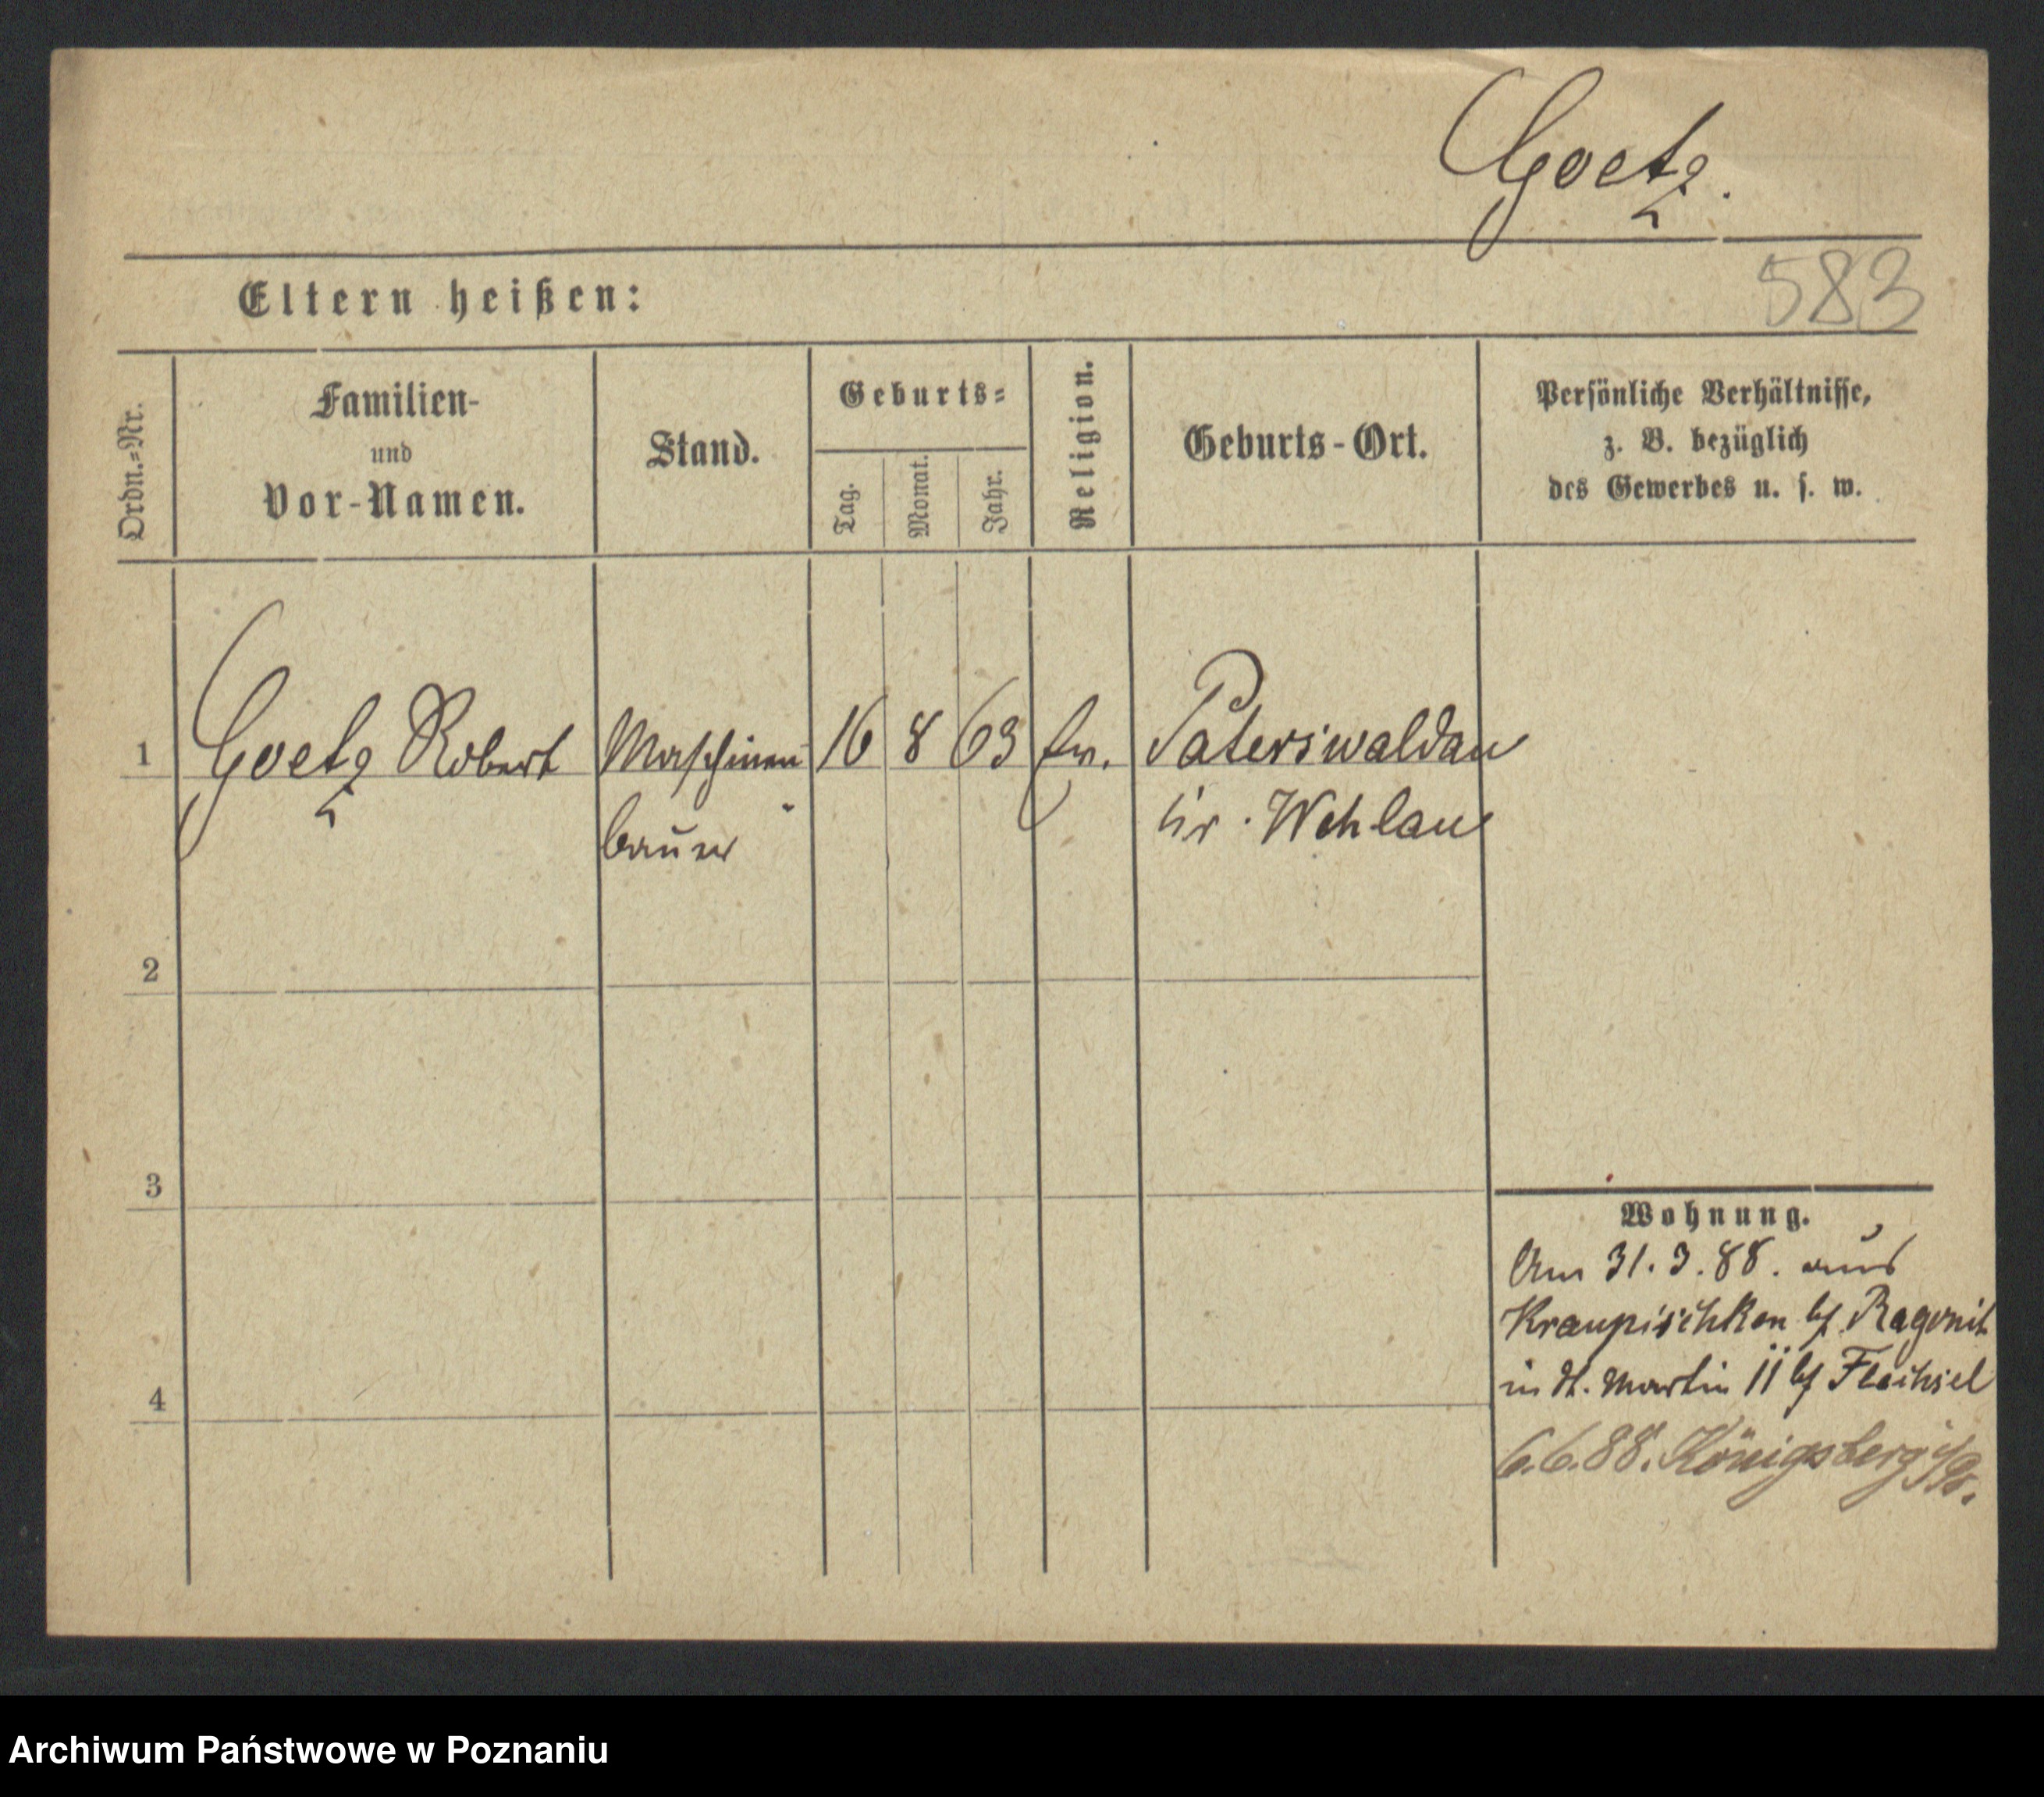 Goetz.
583
Eltern heißen:
Ordn.=Nr.
Familien-
und
Vor-Namen.
Stand.
Geburts=
Tag.
Monat.
Jahr.
Religion.
Geburts-Ort.
Persönliche Verhältnisse,
z. B. bezüglich
des Gewerbes u. s. w.
1 Goetz Robert Maschinen 16 8 63 Paterswaldau
bauer Kr. Wehlau
2
3
4
Wohnung.
Am 31.3.88. aus
Kraupischken bf Ragnit
in St. Martin 11 bf Fleihsel
6.6.88. Königsberg i/Pr.
Archiwum Państwowe w Poznaniu